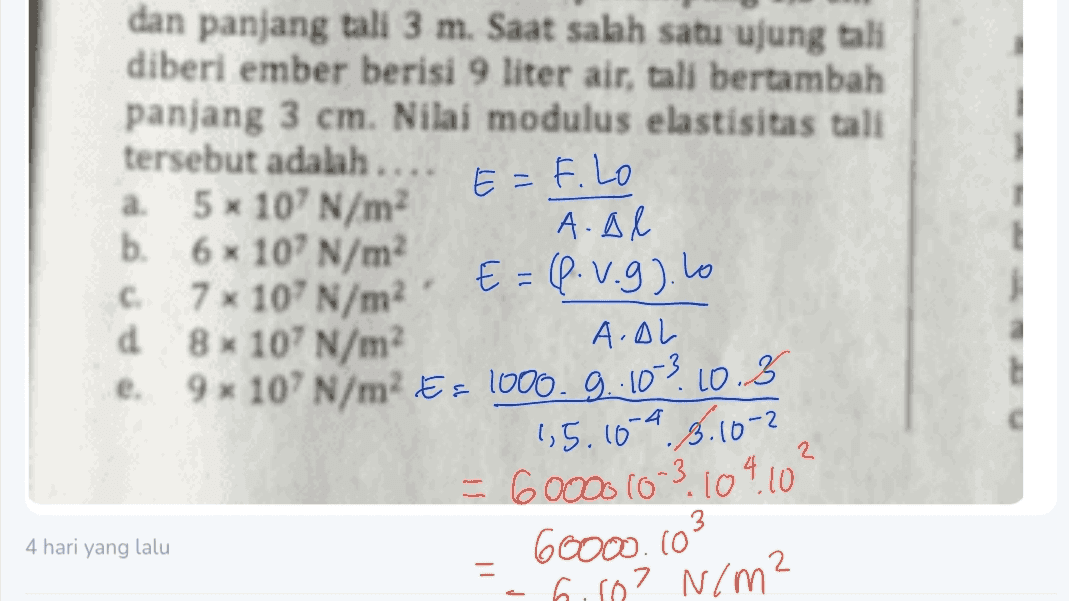 dan panjang tali 3 m. Saat salah satu ujung tali
diberi ember berisi 9 liter air, tali bertambah
panjang 3 cm. Nilai modulus elastisitas tali
tersebut adalah ....
a. 5 × 10⁷ N/m²
b. 6 × 10⁷ N/m²
c. 7 × 10⁷ N/m²
d 8 × 10⁷ N/m²
e. 9 × 10⁷ N/m²
E = F. Lo
A. Δl
E = (ρ. V. g). Lo
A. ΔL
E = 1000. 9. 10⁻³. 10. 3
1,5. 10⁻⁴. 3. 10⁻²
= 60000 10⁻³. 10⁴. 10²
= 60000. 10³
= 6. 10⁷ N/m²
4 hari yang lalu